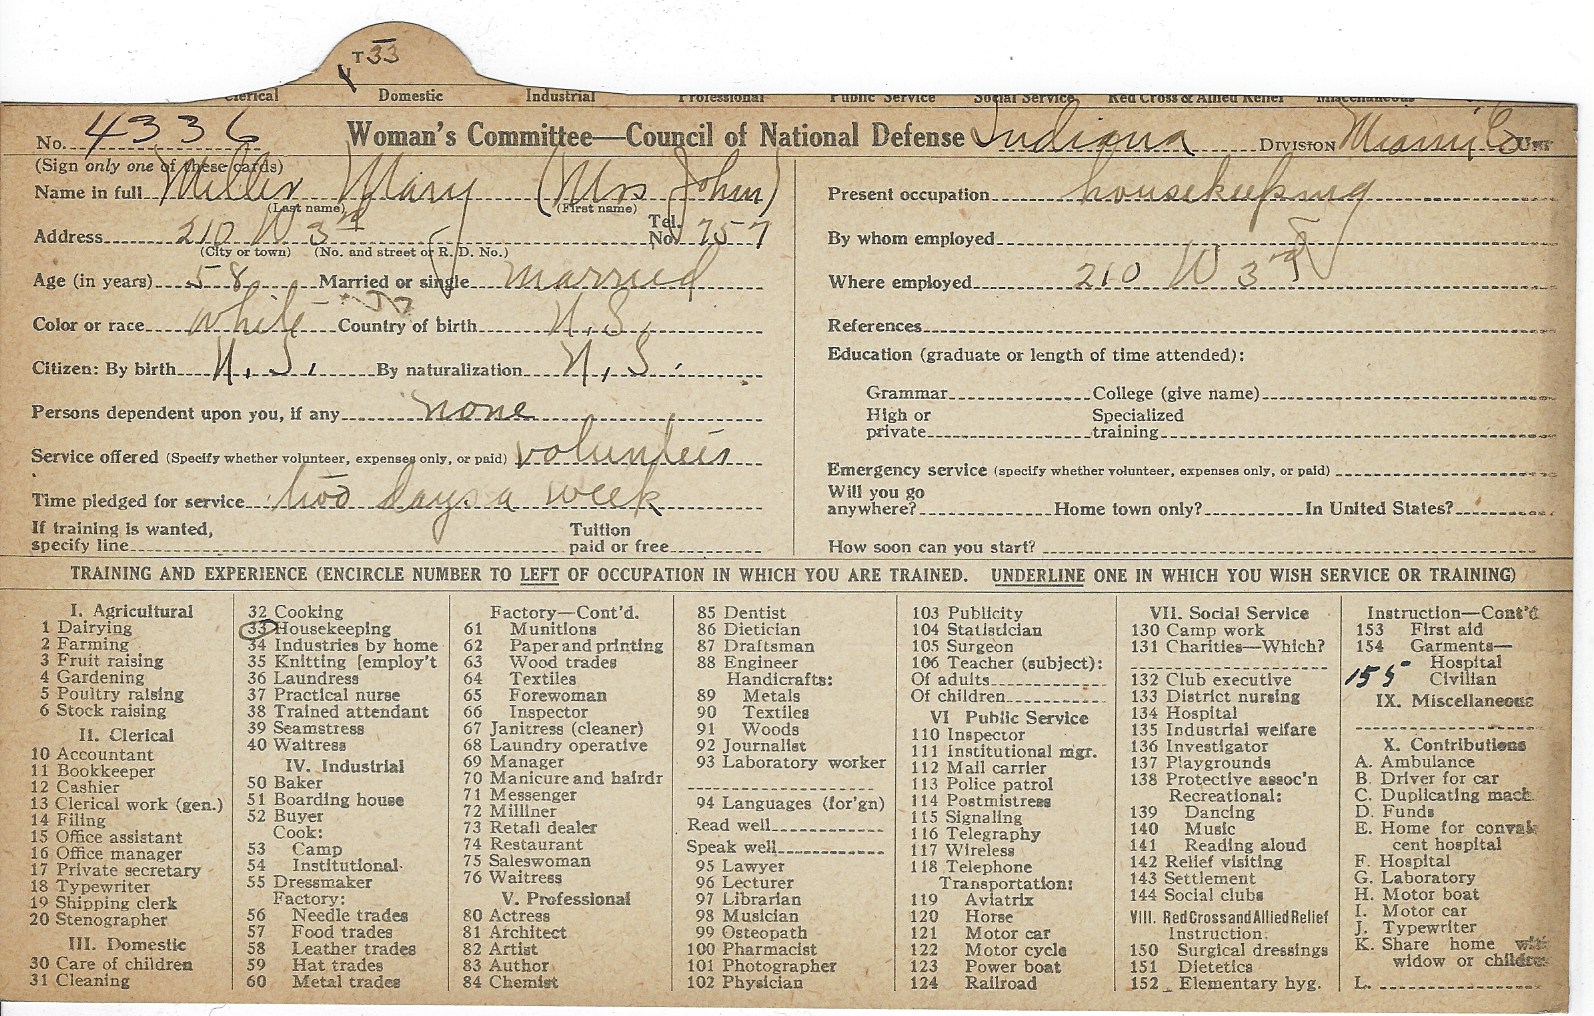 T 33
Clerical Domestic Industrial Professional Public Service Social Service Red Cross & Allied Relief Miscellaneous
No. 4336 Woman's Committee—Council of National Defense Indiana DIVISION Miami Co UNIT
(Sign only one of these cards)
Name in full Miller Mary (Mrs John)
(Last name) (First name)
Address 210 W 3rd Tel. No. 757
(City or town) (No. and street or R. D. No.)
Age (in years) 58 Married or single married
Color or race white Country of birth U.S.
Citizen: By birth U.S. By naturalization U.S.
Persons dependent upon you, if any none
Service offered (Specify whether volunteer, expenses only, or paid) volunteer
Time pledged for service two days a week
If training is wanted,
specify line Tuition paid or free
Present occupation housekeeping
By whom employed
Where employed 210 W 3rd
References
Education (graduate or length of time attended):
Grammar College (give name)
High or private Specialized training
Emergency service (specify whether volunteer, expenses only, or paid)
Will you go
anywhere? Home town only? In United States?
How soon can you start?
TRAINING AND EXPERIENCE (ENCIRCLE NUMBER TO LEFT OF OCCUPATION IN WHICH YOU ARE TRAINED. UNDERLINE ONE IN WHICH YOU WISH SERVICE OR TRAINING)
I. Agricultural
1 Dairying
2 Farming
3 Fruit raising
4 Gardening
5 Poultry raising
6 Stock raising
II. Clerical
10 Accountant
11 Bookkeeper
12 Cashier
13 Clerical work (gen.)
14 Filing
15 Office assistant
16 Office manager
17 Private secretary
18 Typewriter
19 Shipping clerk
20 Stenographer
III. Domestic
30 Care of children
31 Cleaning
32 Cooking
33 Housekeeping
34 Industries by home
35 Knitting [employ't
36 Laundress
37 Practical nurse
38 Trained attendant
39 Seamstress
40 Waitress
IV. Industrial
50 Baker
51 Boarding house
52 Buyer
Cook:
53 Camp
54 Institutional
55 Dressmaker
Factory:
56 Needle trades
57 Food trades
58 Leather trades
59 Hat trades
60 Metal trades
Factory—Cont'd.
61 Munitions
62 Paper and printing
63 Wood trades
64 Textiles
65 Forewoman
66 Inspector
67 Janitress (cleaner)
68 Laundry operative
69 Manager
70 Manicure and hairdr
71 Messenger
72 Milliner
73 Retail dealer
74 Restaurant
75 Saleswoman
76 Waitress
V. Professional
80 Actress
81 Architect
82 Artist
83 Author
84 Chemist
85 Dentist
86 Dietician
87 Draftsman
88 Engineer
Handicrafts:
89 Metals
90 Textiles
91 Woods
92 Journalist
93 Laboratory worker
94 Languages (for'gn)
Read well
Speak well
95 Lawyer
96 Lecturer
97 Librarian
98 Musician
99 Osteopath
100 Pharmacist
101 Photographer
102 Physician
103 Publicity
104 Statistician
105 Surgeon
106 Teacher (subject):
Of adults
Of children
VI Public Service
110 Inspector
111 Institutional mgr.
112 Mail carrier
113 Police patrol
114 Postmistress
115 Signaling
116 Telegraphy
117 Wireless
118 Telephone
Transportation:
119 Aviatrix
120 Horse
121 Motor car
122 Motor cycle
123 Power boat
124 Railroad
VII. Social Service
130 Camp work
131 Charities—Which?
132 Club executive
133 District nursing
134 Hospital
135 Industrial welfare
136 Investigator
137 Playgrounds
138 Protective assoc'n
Recreational:
139 Dancing
140 Music
141 Reading aloud
142 Relief visiting
143 Settlement
144 Social clubs
VIII. Red Cross and Allied Relief
Instruction:
150 Surgical dressings
151 Dietetics
152 Elementary hyg.
Instruction—Cont'd
153 First aid
154 Garments—
Hospital
155 Civilian
IX. Miscellaneous
X. Contributions
A. Ambulance
B. Driver for car
C. Duplicating mach.
D. Funds
E. Home for conval
cent hospital
F. Hospital
G. Laboratory
H. Motor boat
I. Motor car
J. Typewriter
K. Share home with
widow or children
L.